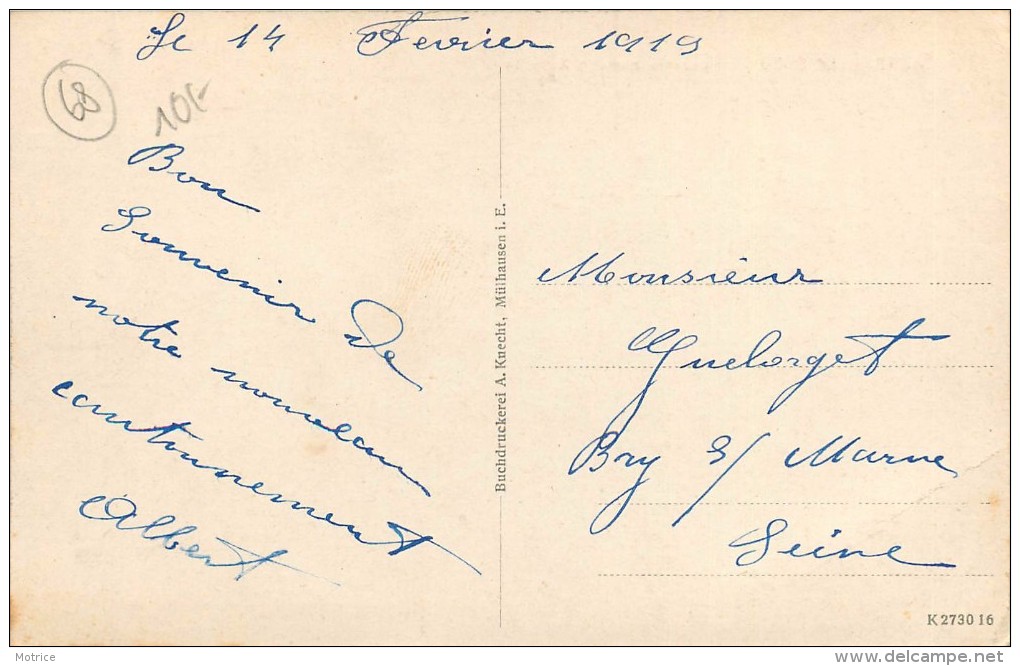 Le 14 Fevrier 1919
68
10F
Bon
Souvenir de
notre nouveau
cantonnement
Albert
Buchdruckerei A. Knecht, Mülhausen i. E.
Monsieur
Guelorget
Bry s/ Marne
Seine
K 273016
Motrice
delcampe.net